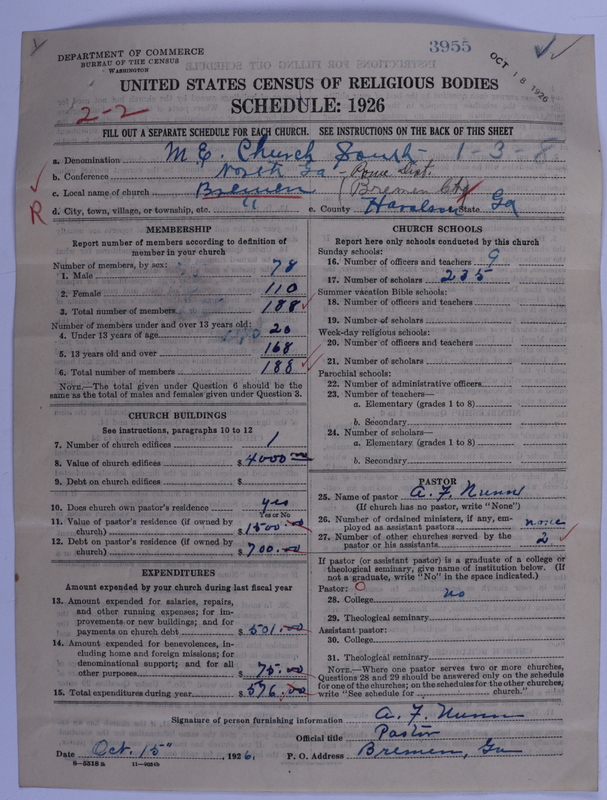 3955
OCT 18 1926
DEPARTMENT OF COMMERCE
BUREAU OF THE CENSUS
WASHINGTON
UNITED STATES CENSUS OF RELIGIOUS BODIES
SCHEDULE: 1926
2-2
FILL OUT A SEPARATE SCHEDULE FOR EACH CHURCH. SEE INSTRUCTIONS ON THE BACK OF THIS SHEET
a. Denomination M. E. Church South 1-3-8
b. Conference North Ga - Rome Dist.
c. Local name of church Bremen (Bremen Chg
R
d. City, town, village, or township, etc. " e. County Haralson State Ga
MEMBERSHIP
Report number of members according to definition of member in your church
Number of members, by sex:
1. Male 78
2. Female 110
3. Total number of members 188
Number of members under and over 13 years old:
4. Under 13 years of age 20
5. 13 years old and over 168
6. Total number of members 188
NOTE.—The total given under Question 6 should be the
same as the total of males and females given under Question 3.
CHURCH BUILDINGS
See instructions, paragraphs 10 to 12
7. Number of church edifices 1
8. Value of church edifices $4000
9. Debt on church edifices $
10. Does church own pastor's residence yes
Yes or No
11. Value of pastor's residence (if owned by
church) $1500.00
12. Debt on pastor's residence (if owned by
church) $700.00
EXPENDITURES
Amount expended by your church during last fiscal year
13. Amount expended for salaries, repairs,
and other running expenses; for im-
provements or new buildings; and for
payments on church debt $501.00
14. Amount expended for benevolences, in-
cluding home and foreign missions; for
denominational support; and for all
other purposes $75.00
15. Total expenditures during year $576.00
CHURCH SCHOOLS
Report here only schools conducted by this church
Sunday schools:
16. Number of officers and teachers 9
17. Number of scholars 235
Summer vacation Bible schools:
18. Number of officers and teachers
19. Number of scholars
Week-day religious schools:
20. Number of officers and teachers
21. Number of scholars
Parochial schools:
22. Number of administrative officers
23. Number of teachers—
a. Elementary (grades 1 to 8)
b. Secondary
24. Number of scholars—
a. Elementary (grades 1 to 8)
b. Secondary
PASTOR
25. Name of pastor A. F. Nunn
(If church has no pastor, write "None")
26. Number of ordained ministers, if any, em-
ployed as assistant pastors none
27. Number of other churches served by the
pastor or his assistants 2
If pastor (or assistant pastor) is a graduate of a college or
theological seminary, give name of institution below. (If
not a graduate, write "No" in the space indicated.)
Pastor:
28. College no
29. Theological seminary
Assistant pastor:
30. College
31. Theological seminary
NOTE.—Where one pastor serves two or more churches,
Questions 28 and 29 should be answered only on the schedule
for one of the churches; on the schedules for the other churches,
write "See schedule for church."
Signature of person furnishing information A. F. Nunn
Official title Pastor
Date Oct. 15" , 1926. P. O. Address Bremen, Ga
8-5518 a